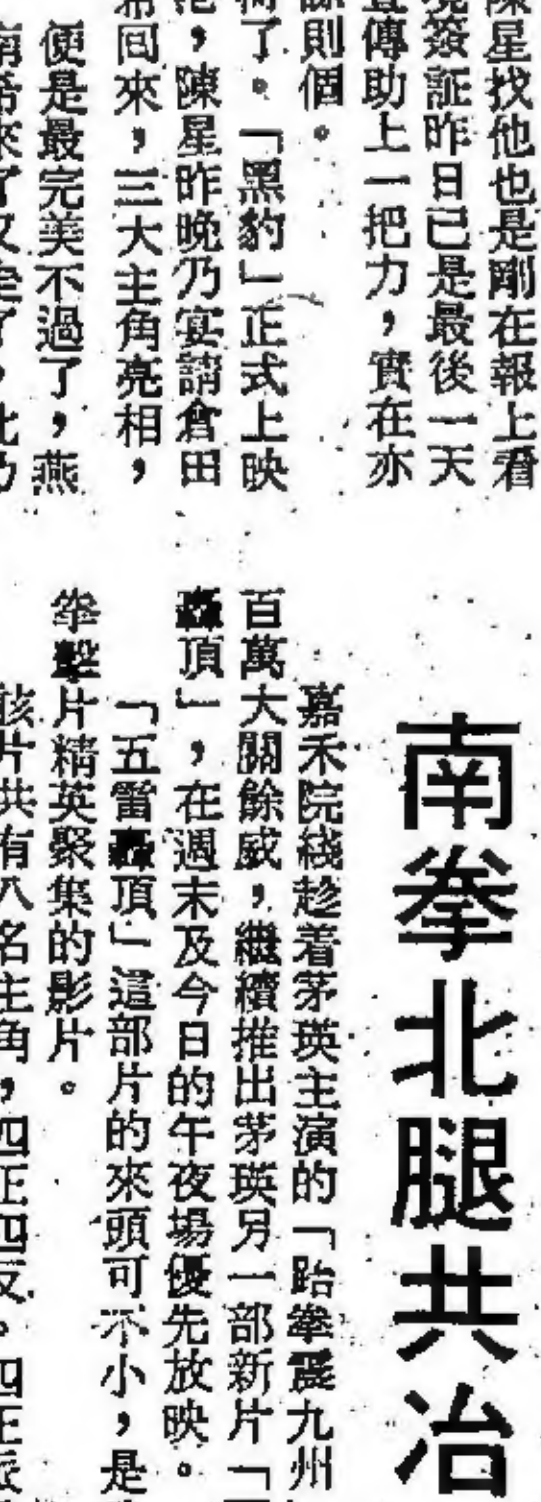 陳星找他也是剛在報上看
簽証昨日已是最後一天
傳助上一把力，實在亦
則個。
了。「黑豹」正式上映
，陳星昨晚乃宴請倉田
回來，三大主角亮相，
便是最完美不過了，燕
南拳北腿共冶
嘉禾院綫趁着茅瑛主演的「跆拳震九州
百萬大關餘威，繼續推出茅瑛另一部新片「
轟頂」，在週末及今日的午夜場優先放映。
「五雷轟頂」這部片的來頭可不小，是
拳擊片精英聚集的影片。
該片共有八名主角，四正四反。四正派